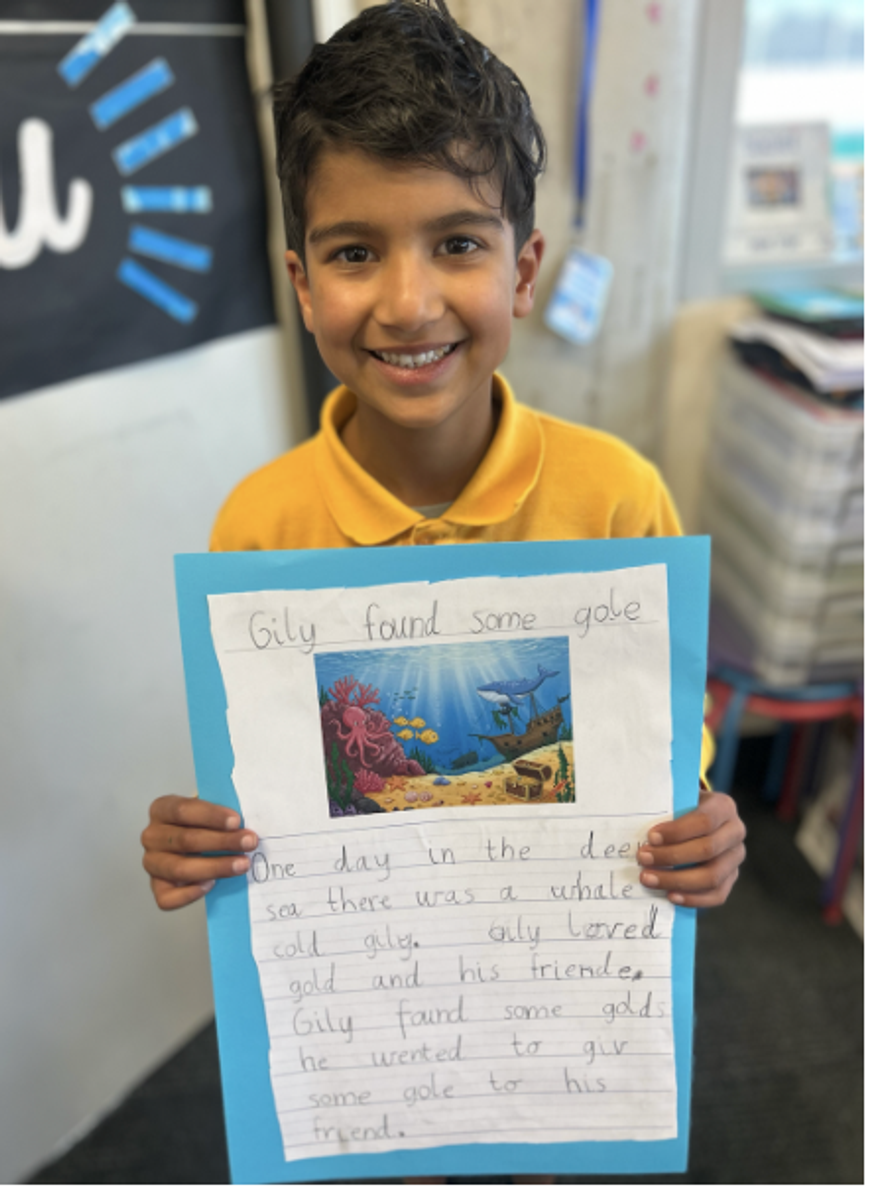 u
Gily found some gole
One day in the deep
sea there was a whale
cold gily. Gily loved
gold and his friende.
Gily found some golds
he wented to giv
some gole to his
friend.